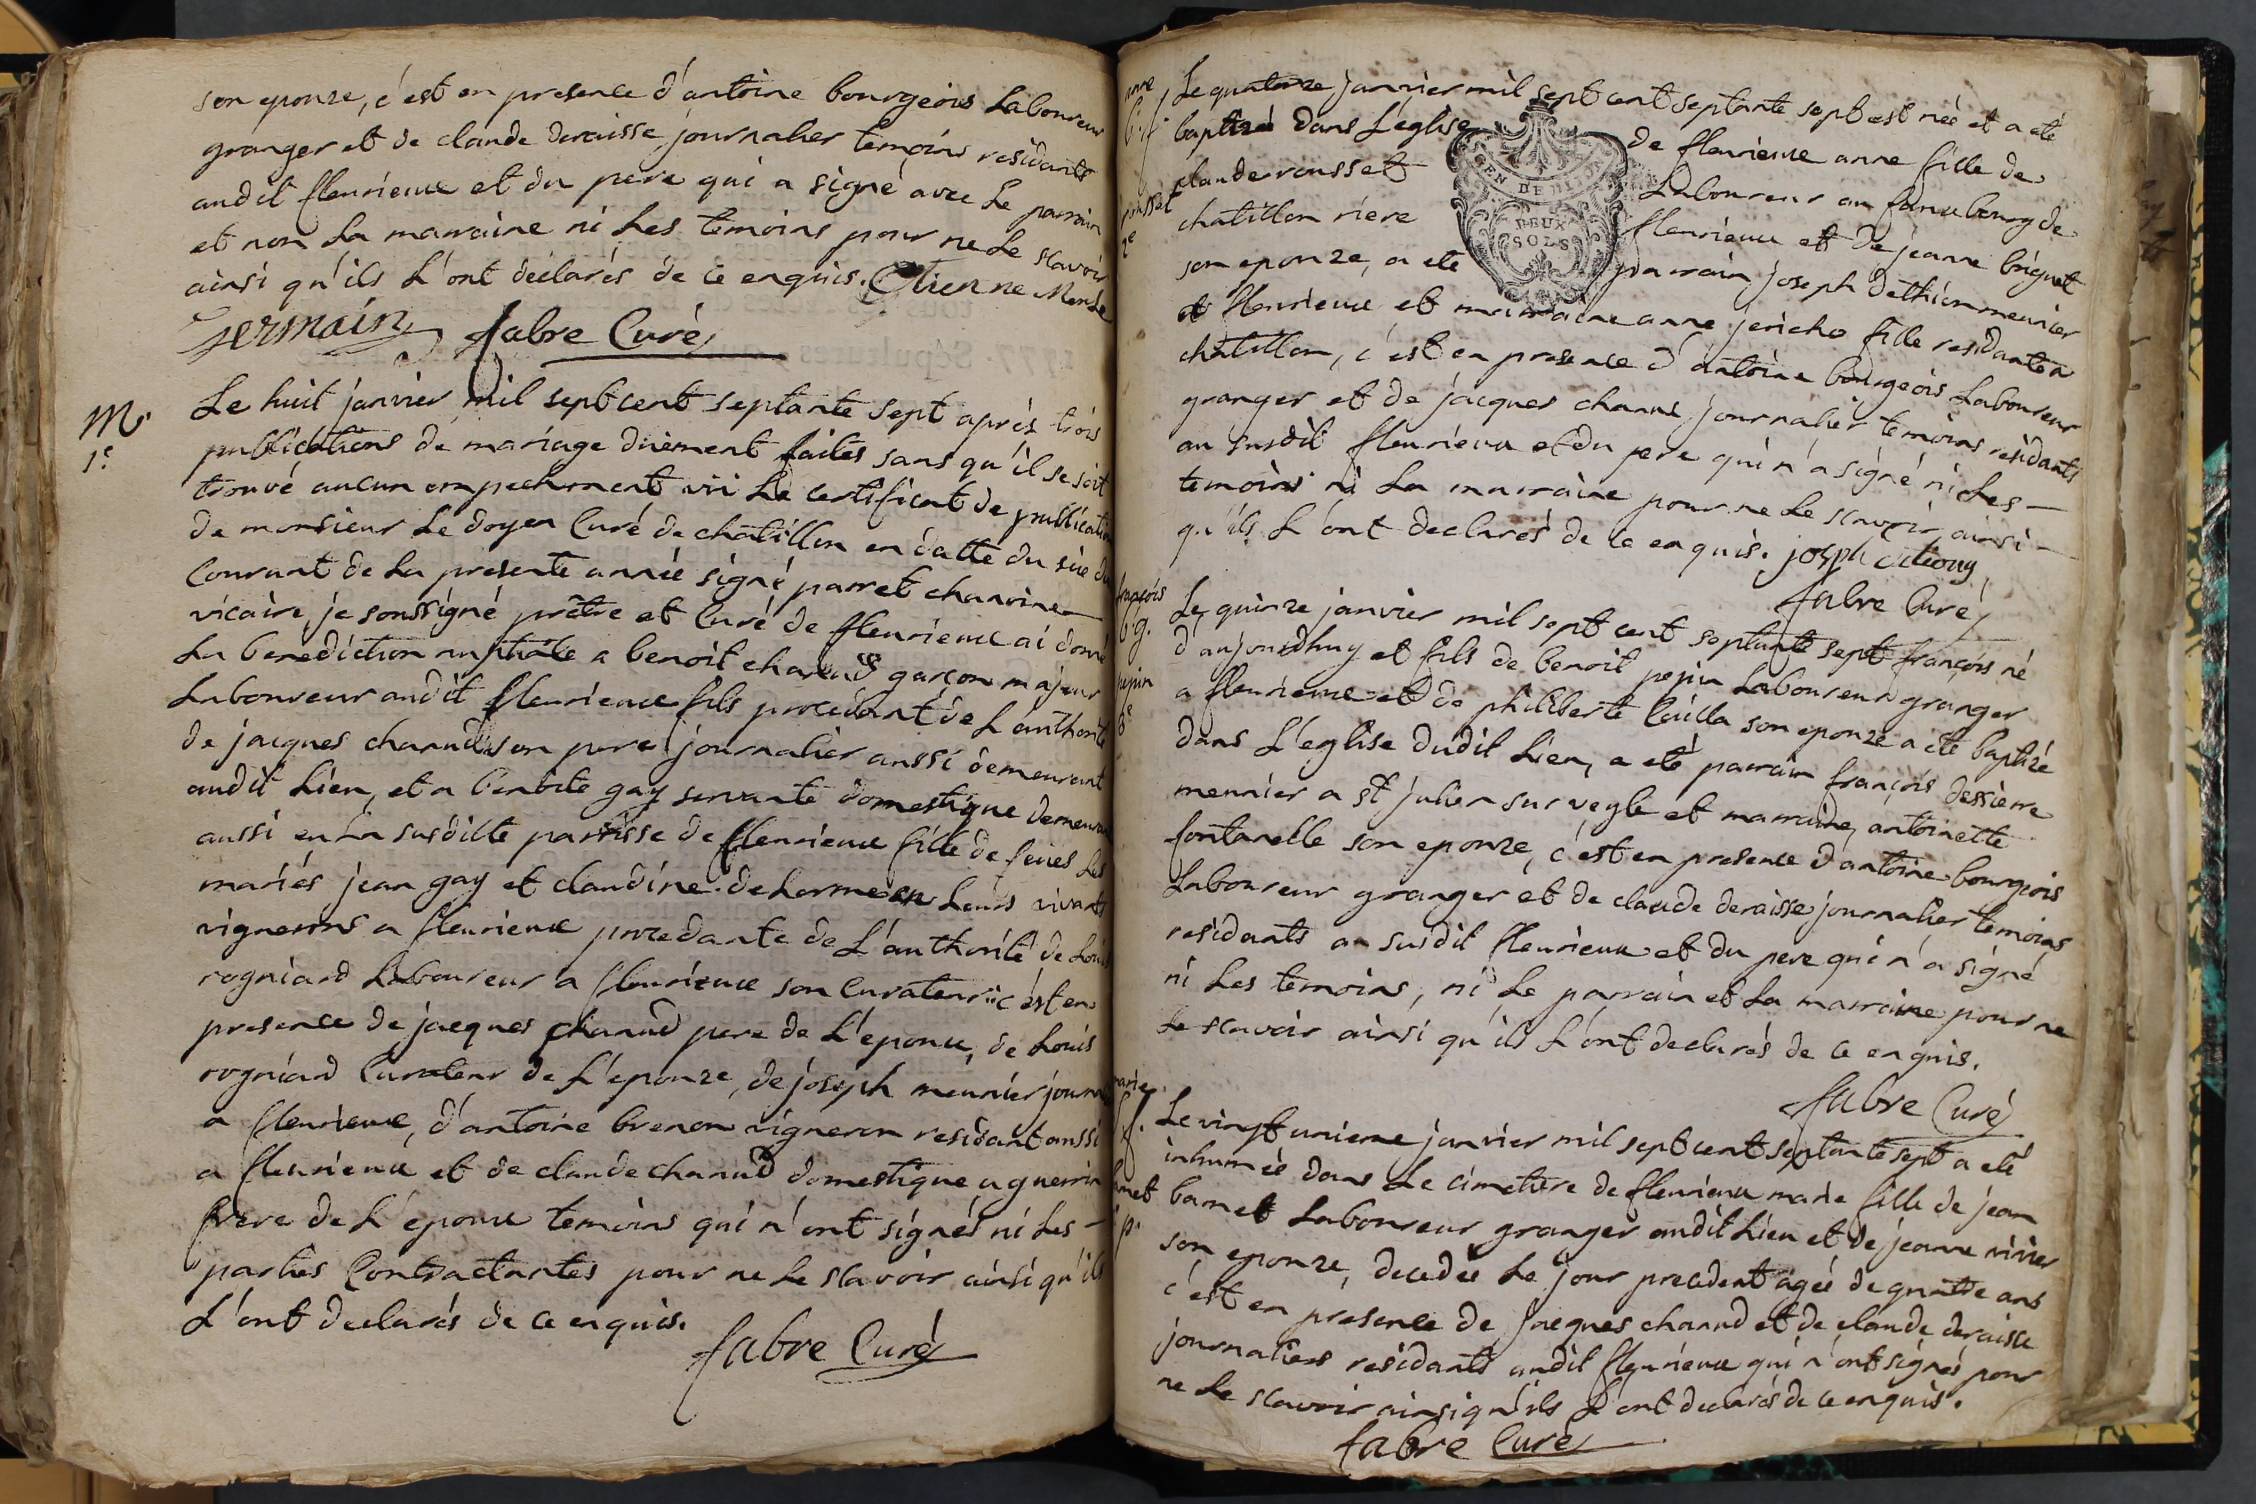 son epouze, c'est en presence d'antoine bourgeois Laboureur
granger et de claude deraisse journalier temoins residants
audit fleurieux et du pere qui a signé avec Le parrain
et non La marraine ni Les temoins pour ne Le scavoir
ainsi qu'ils L'ont déclarés de ce enquis. Etienne
Germain fabre Curé
M.
1e
Le huit janvier mil sept cent septante sept après trois
publications de mariage duement faites sans qu'il se soit
trouvé aucun empechement vû Le certificat de publication
de monsieur Le doyen Curé de chatillon en datte du six du
Courant de La presente année signé parret chanoine
vicaire, je soussigné prêtre et Curé de fleurieux ai donné
La benediction nuptiale a benoit charud garçon majeur
Laboureur audit fleurieux fils procedant de L'authorité
de jacques charud son pere journalier aussi demeurant
audit Lieu, et a benoite gay servante domestique demeurant
aussi en La susditte paroisse de fleurieux fille de feues Les
mariés jean gay et claudine delorme en Leurs vivants
vignerons a fleurieux procedante de L'authorité de Louis
rogniard Laboureur a fleurieux son Curateur: c'est en
presence de jacques charud pere de L'epoux, de Louis
rogniard Curateur de L'epouze, de joseph meunier journalier
a fleurieux, d'antoine brenon vigneron residant aussi
a fleurieux et de claude charud domestique a guerrin
frere de L'epoux temoins qui n'ont signés ni Les
parties Contractantes pour ne Le scavoir ainsi qu'ils
L'ont declarés de ce enquis.
fabre Curé
anne
b. f.
rousset
2e
Le quatorze janvier mil sept cent septante sept est née et a eté
baptizé dans L'église de fleurieux anne fille de
claude rousset Laboureur au fauxbourg de
chatillon riere fleurieux et de jeanne briquet
son epouze, a eté parrain joseph dethion meunier
a fleurieux et marraine anne jericho fille residante a
chatillon, c'est en presence d'antoine bourgeois Laboureur
granger et de jacques charud journalier temoins residants
au susdit fleurieux et du pere qui n'a signé ni Les
temoins ni La marraine pour ne Le scavoir ainsi
qu'ils L'ont declarés de ce enquis. joseph
fabre Curé
EN DE DIJ
DEUX
SOLS
françois
b. g.
pepin
3e
Le quinze janvier mil sept cent septante sept françois né
d'aujourdhuy et fils de benoit pepin Laboureur granger
a fleurieux et de philiberte Cailla son epouze a eté baptizé
dans L'eglise dudit Lieu, a eté parrain françois dessierre
meunier a st julien sur veyle et marraine antoinette
fontanelle son epouze, c'est en presence d'antoine bourgeois
Laboureur granger et de claude deraisse journalier temoins
residants au susdit fleurieux et du pere qui n'a signé
ni Les temoins, ni Le parrain et La marraine pour ne
Le scavoir ainsi qu'ils L'ont declarés de ce enquis.
fabre Curé
marie
f.
p.
Le vingt unieme janvier mil sept cent septante sept a eté
inhumée dans Le cimetiere de fleurieux marie fille de jean
barnet Laboureur granger audit Lieu et de jeanne vivier
son epouze, decedée Le jour precedent agée de quatre ans
c'est en presence de jacques charud et de claude deraisse
journaliers residants audit fleurieux qui n'ont signés pour
ne Le scavoir ainsi qu'ils L'ont declarés de ce enquis.
fabre Curé